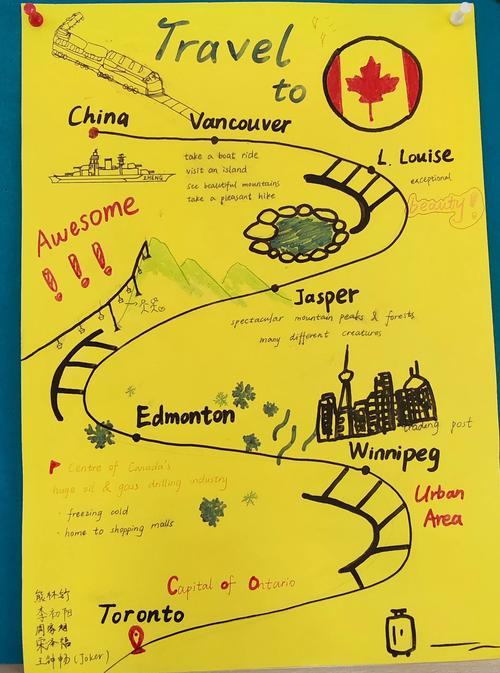 Travel
to
China
Vancouver
take a boat ride
visit an island
see beautiful mountains
take a pleasant hike
ZHENG
L. Louise
exceptional
beauty!
Awesome
!!!
Jasper
spectacular mountain peaks & forests
many different creatures
Edmonton
trading post
Winnipeg
Centre of Canada's
huge oil & gass drilling industry
· freezing cold
· home to shopping malls
Urban
Area
Capital of Ontario
Toronto
李初阳
王钟畅 (Joker)